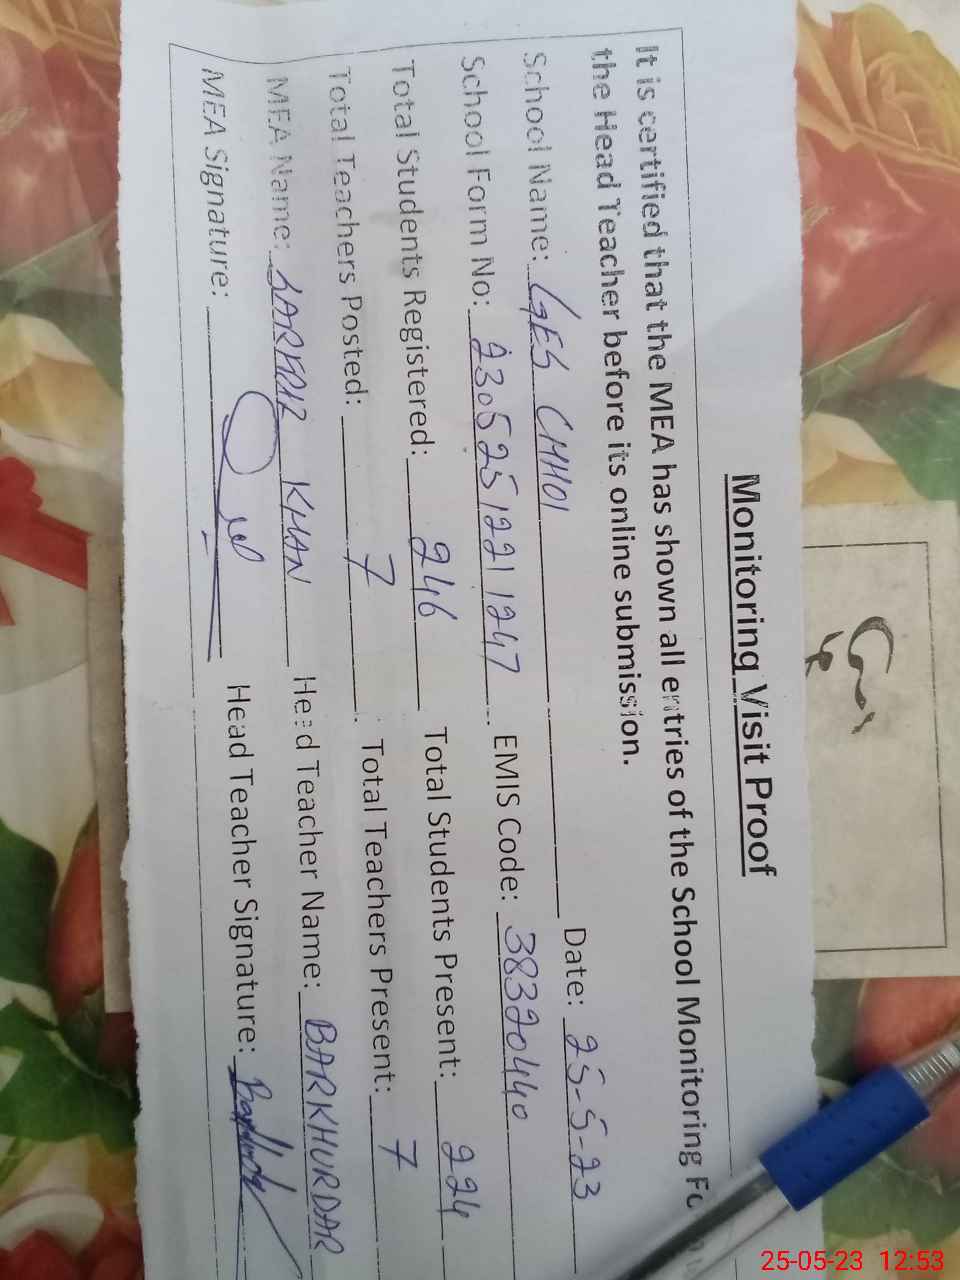 Monitoring Visit Proof
It is certified that the MEA has shown all entries of the School Monitoring Fo
the Head Teacher before its online submission.
School Name: GES CHHOI Date: 25-5-23
School Form No: 2305251221247 EMIS Code: 38320440
Total Students Registered: 246 Total Students Present: 224
Total Teachers Posted: 7 Total Teachers Present: 7
MEA Name: SARFRAZ KHAN Head Teacher Name: BARKHURDAR
MEA Signature: Head Teacher Signature:
25-05-23 12:53